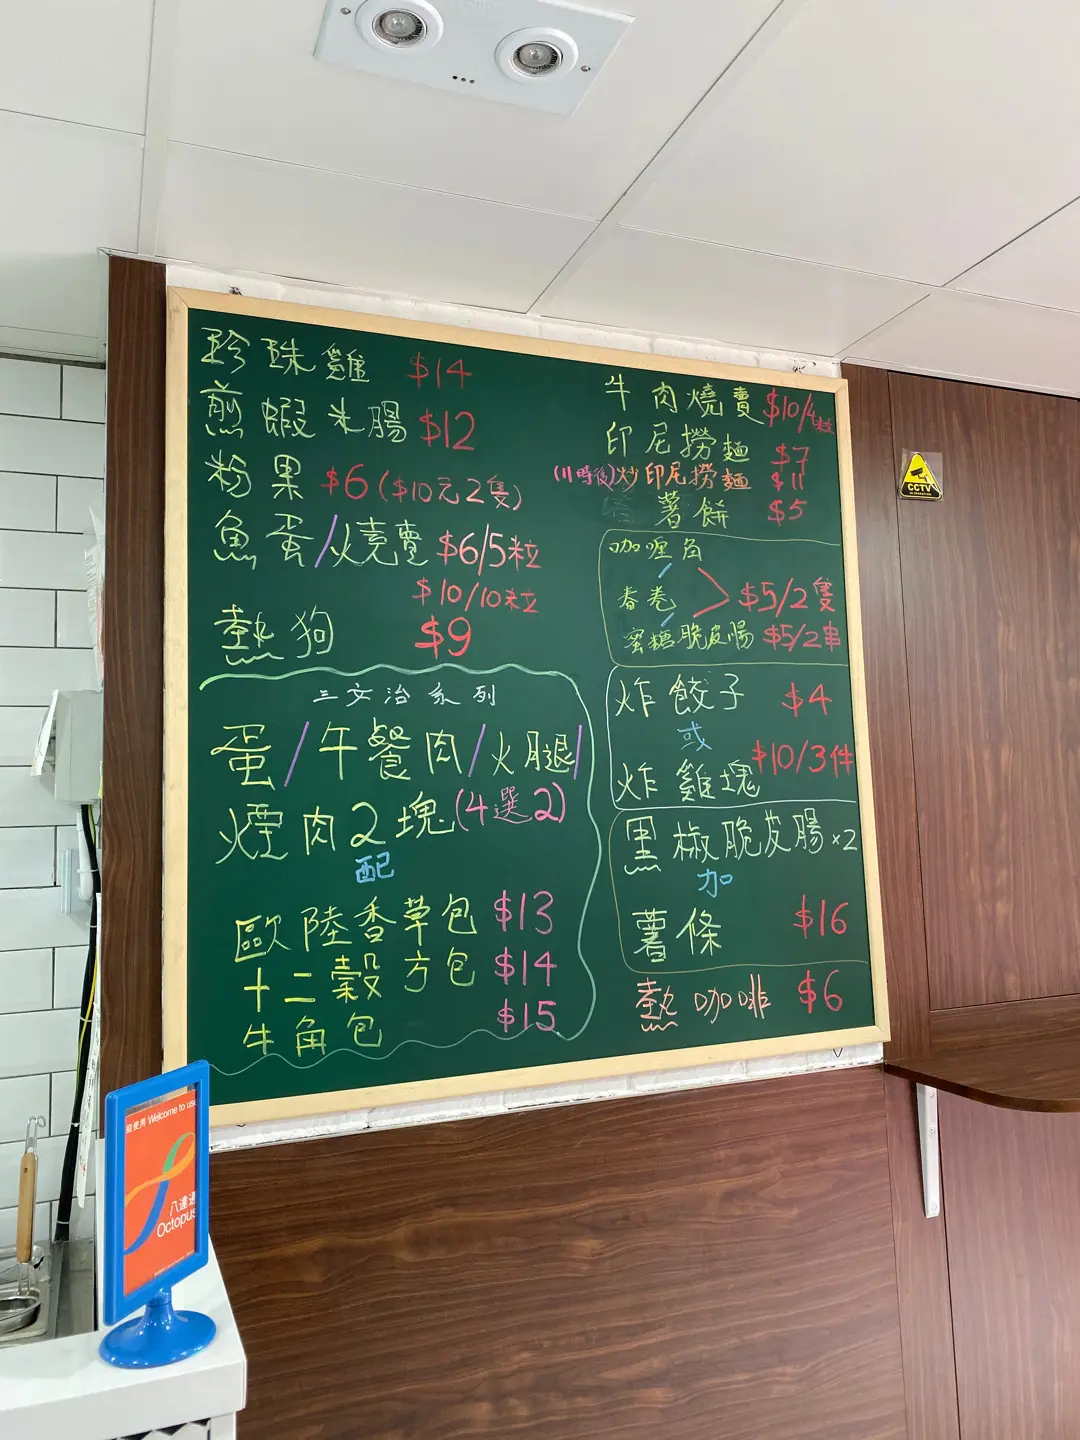 珍珠雞 $14
煎蝦米腸 $12
粉果 $6 ($10元2隻)
魚蛋/燒賣 $6/5粒
$10/10粒
熱狗 $9
三文治系列
蛋/午餐肉/火腿/
煙肉2塊(4選2)
配
歐陸香草包 $13
十二穀方包 $14
牛角包 $15
牛肉燒賣 $10/4粒
印尼撈麵 $7
(11時後)炒印尼撈麵 $11
薯餅 $5
咖喱角
春卷 $5/2隻
蜜糖脆皮腸 $5/2串
炸餃子 $4
或
炸雞塊 $10/3件
黑椒脆皮腸x2
加
薯條 $16
熱咖啡 $6
CCTV
Welcome to use
八達通
Octopus